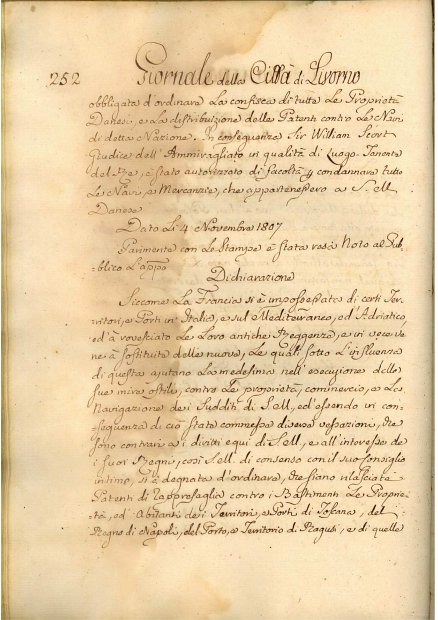 252 Giornale della Città di Livorno
obbligata d'ordinare la confisca di tutte le Proprietà
Danesi, e la distribuzione delle Patenti contro le Navi
di detta Nazione. In conseguenza Sir William Scott
Giudice dell'Ammiragliato in qualità di Luogo-Tenente
del Re, è stato autorizzato di facoltà condannare tutte
le Navi, e Mercanzie, che appartenessero a S. M.
Danese
Dato li 4 Novembre 1807
Parimente con le Stampe è stata resa Noto al Pub-
blico l'appo
Dichiarazione
Siccome la Francia si è impossessata di certi Ter-
ritori, e Porti in Italia, e sul Mediterraneo, ed Adriatico,
ed à rovesciato le loro antiche Reggenze, e in vece ve-
ne à sostituite delle nuove, le quali sotto l'influenza
di questa ajutano la medesima nell'esecuzione delle
sue mire ostili, contro le proprietà, commercio, e la
Navigazione dei Sudditi di S. M., ed essendo in con-
sequenza di ciò stata commessa diverse vessazioni, che
sono contrarie a i diritti equi di S. M., e all'interesse de
i suoi Regni, così S. M. di consenso con il suo Consiglio
intimo, si è degnata d'ordinare, che siano rilasciate
Patenti di rappresaglia contro i Bastimenti le Proprie-
tà, ed Abitanti dei Territori, e Porti di Toscana, del
Regno di Napoli, del Porto, e Territorio di Ragusi, e di quelle